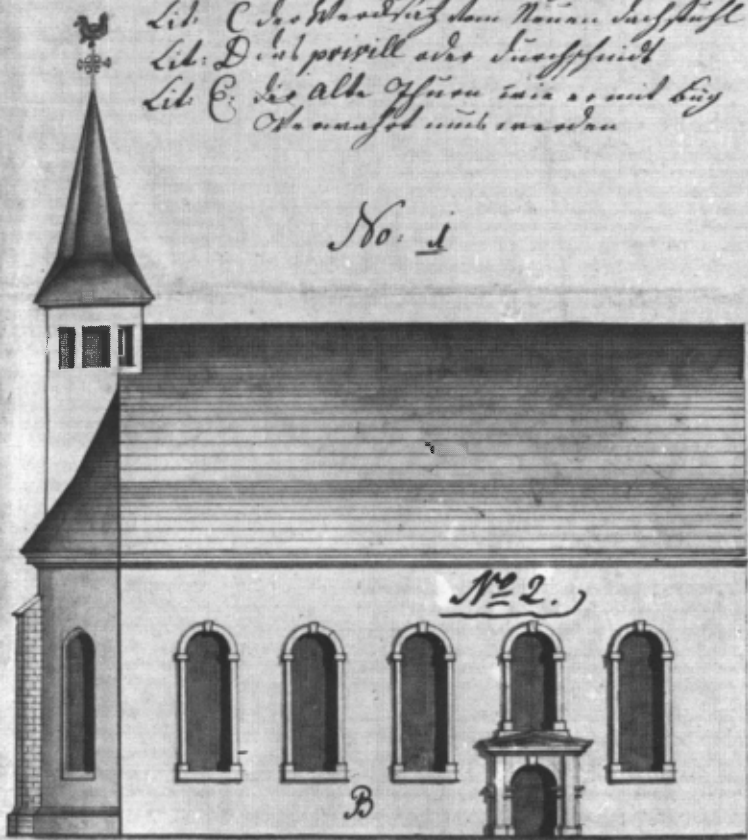 Lit: C der Werksatz vom Neuen dachstuhl
Lit: D das profill oder durchschnidt
Lit: E: die Alte Thurn wie er mit büg
Verwahrt mus werden
No: 1
No 2.
B